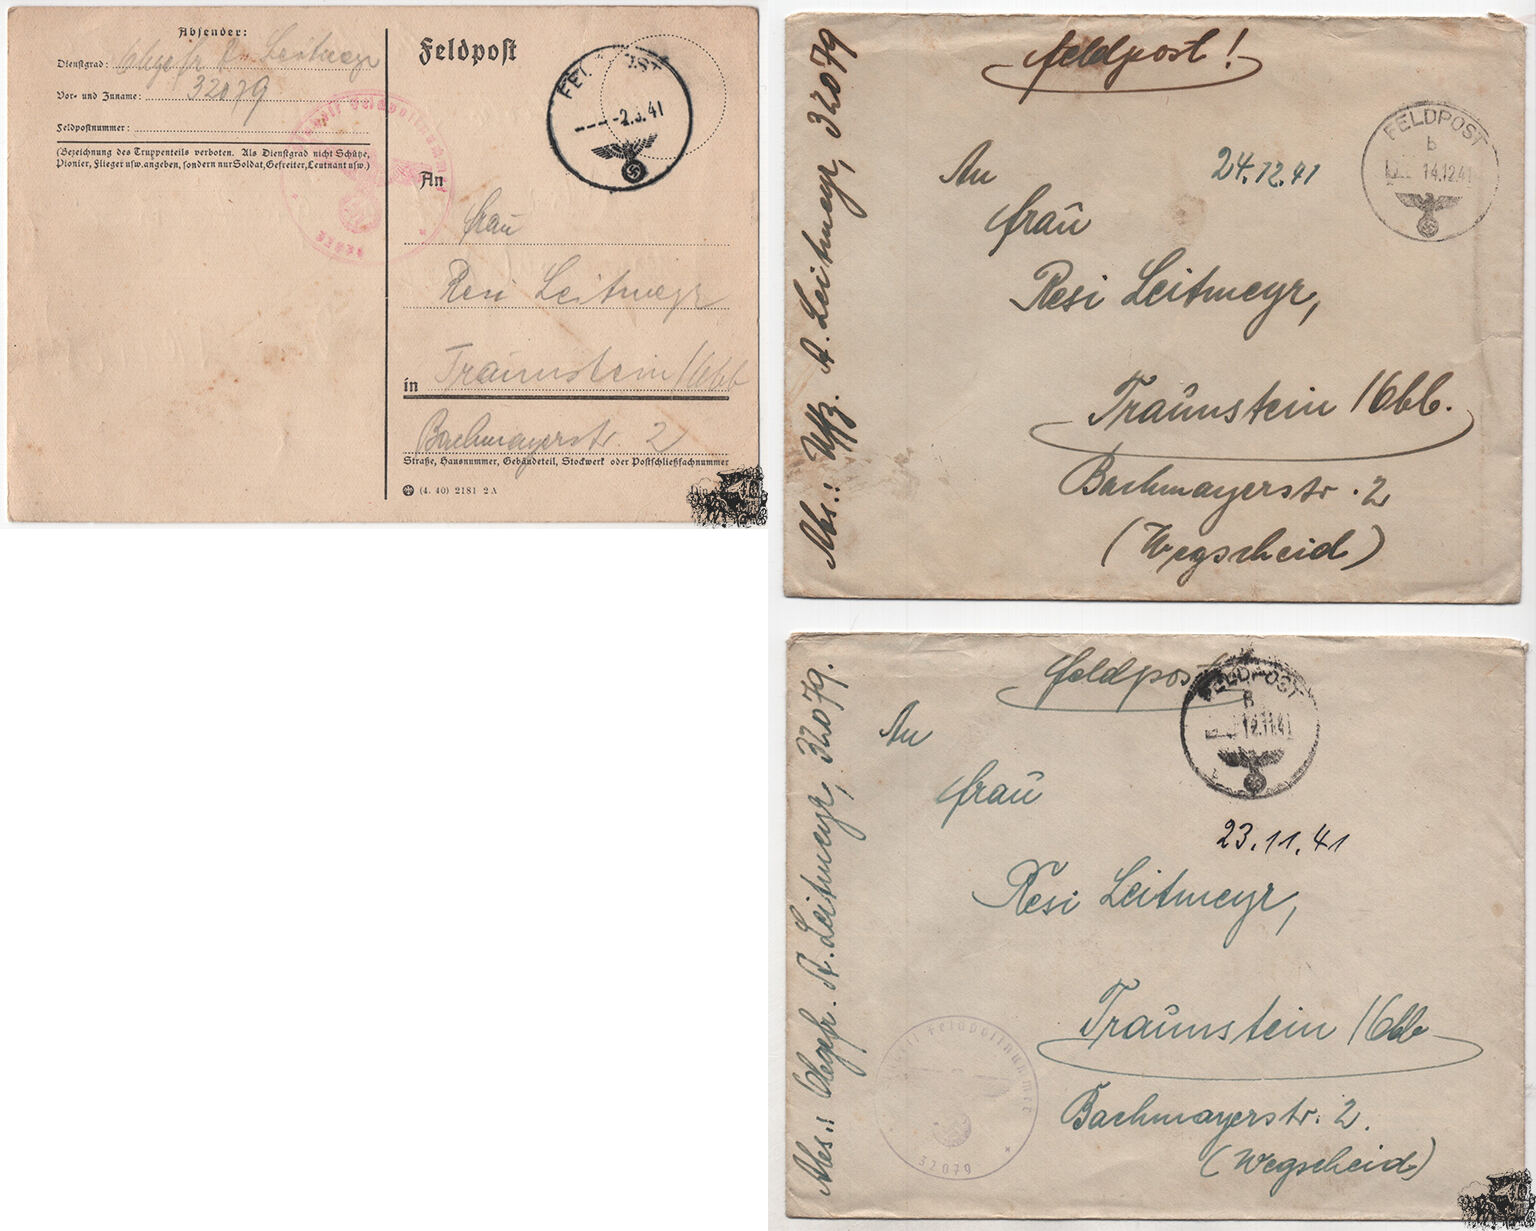 Absender:
Dienstgrad: Obgefr A. Leitmeyr
Vor- und Zuname: 32079
Feldpostnummer:
(Bezeichnung des Truppenteils verboten. Als Dienstgrad nicht Schütze,
Pionier, Flieger usw. angeben, sondern nur Soldat, Gefreiter, Leutnant usw.)
Feldpost
FELDPOST
-2.3.41
An
Frau
Resi Leitmeyr
in Traunstein/Obb
Bachmayerstr. 2
Straße, Hausnummer, Gebäudeteil, Stockwerk oder Postschließfachnummer
(4. 40) 2181 2 A
Feldpost!
Abs.: Uffz. A. Leitmeyr, 32079
An
24.12.41
FELDPOST
b
14.12.41
Frau
Resi Leitmeyr,
Traunstein/Obb.
Bachmayerstr. 2
(Wegscheid)
Feldpost
Abs.: Obgefr. A. Leitmeyr, 32079.
FELDPOST
B
12.11.41
An
Frau
23.11.41
Resi Leitmeyr,
Traunstein/Obb
Bachmayerstr. 2.
(Wegscheid)
Feldpostnummer
32079